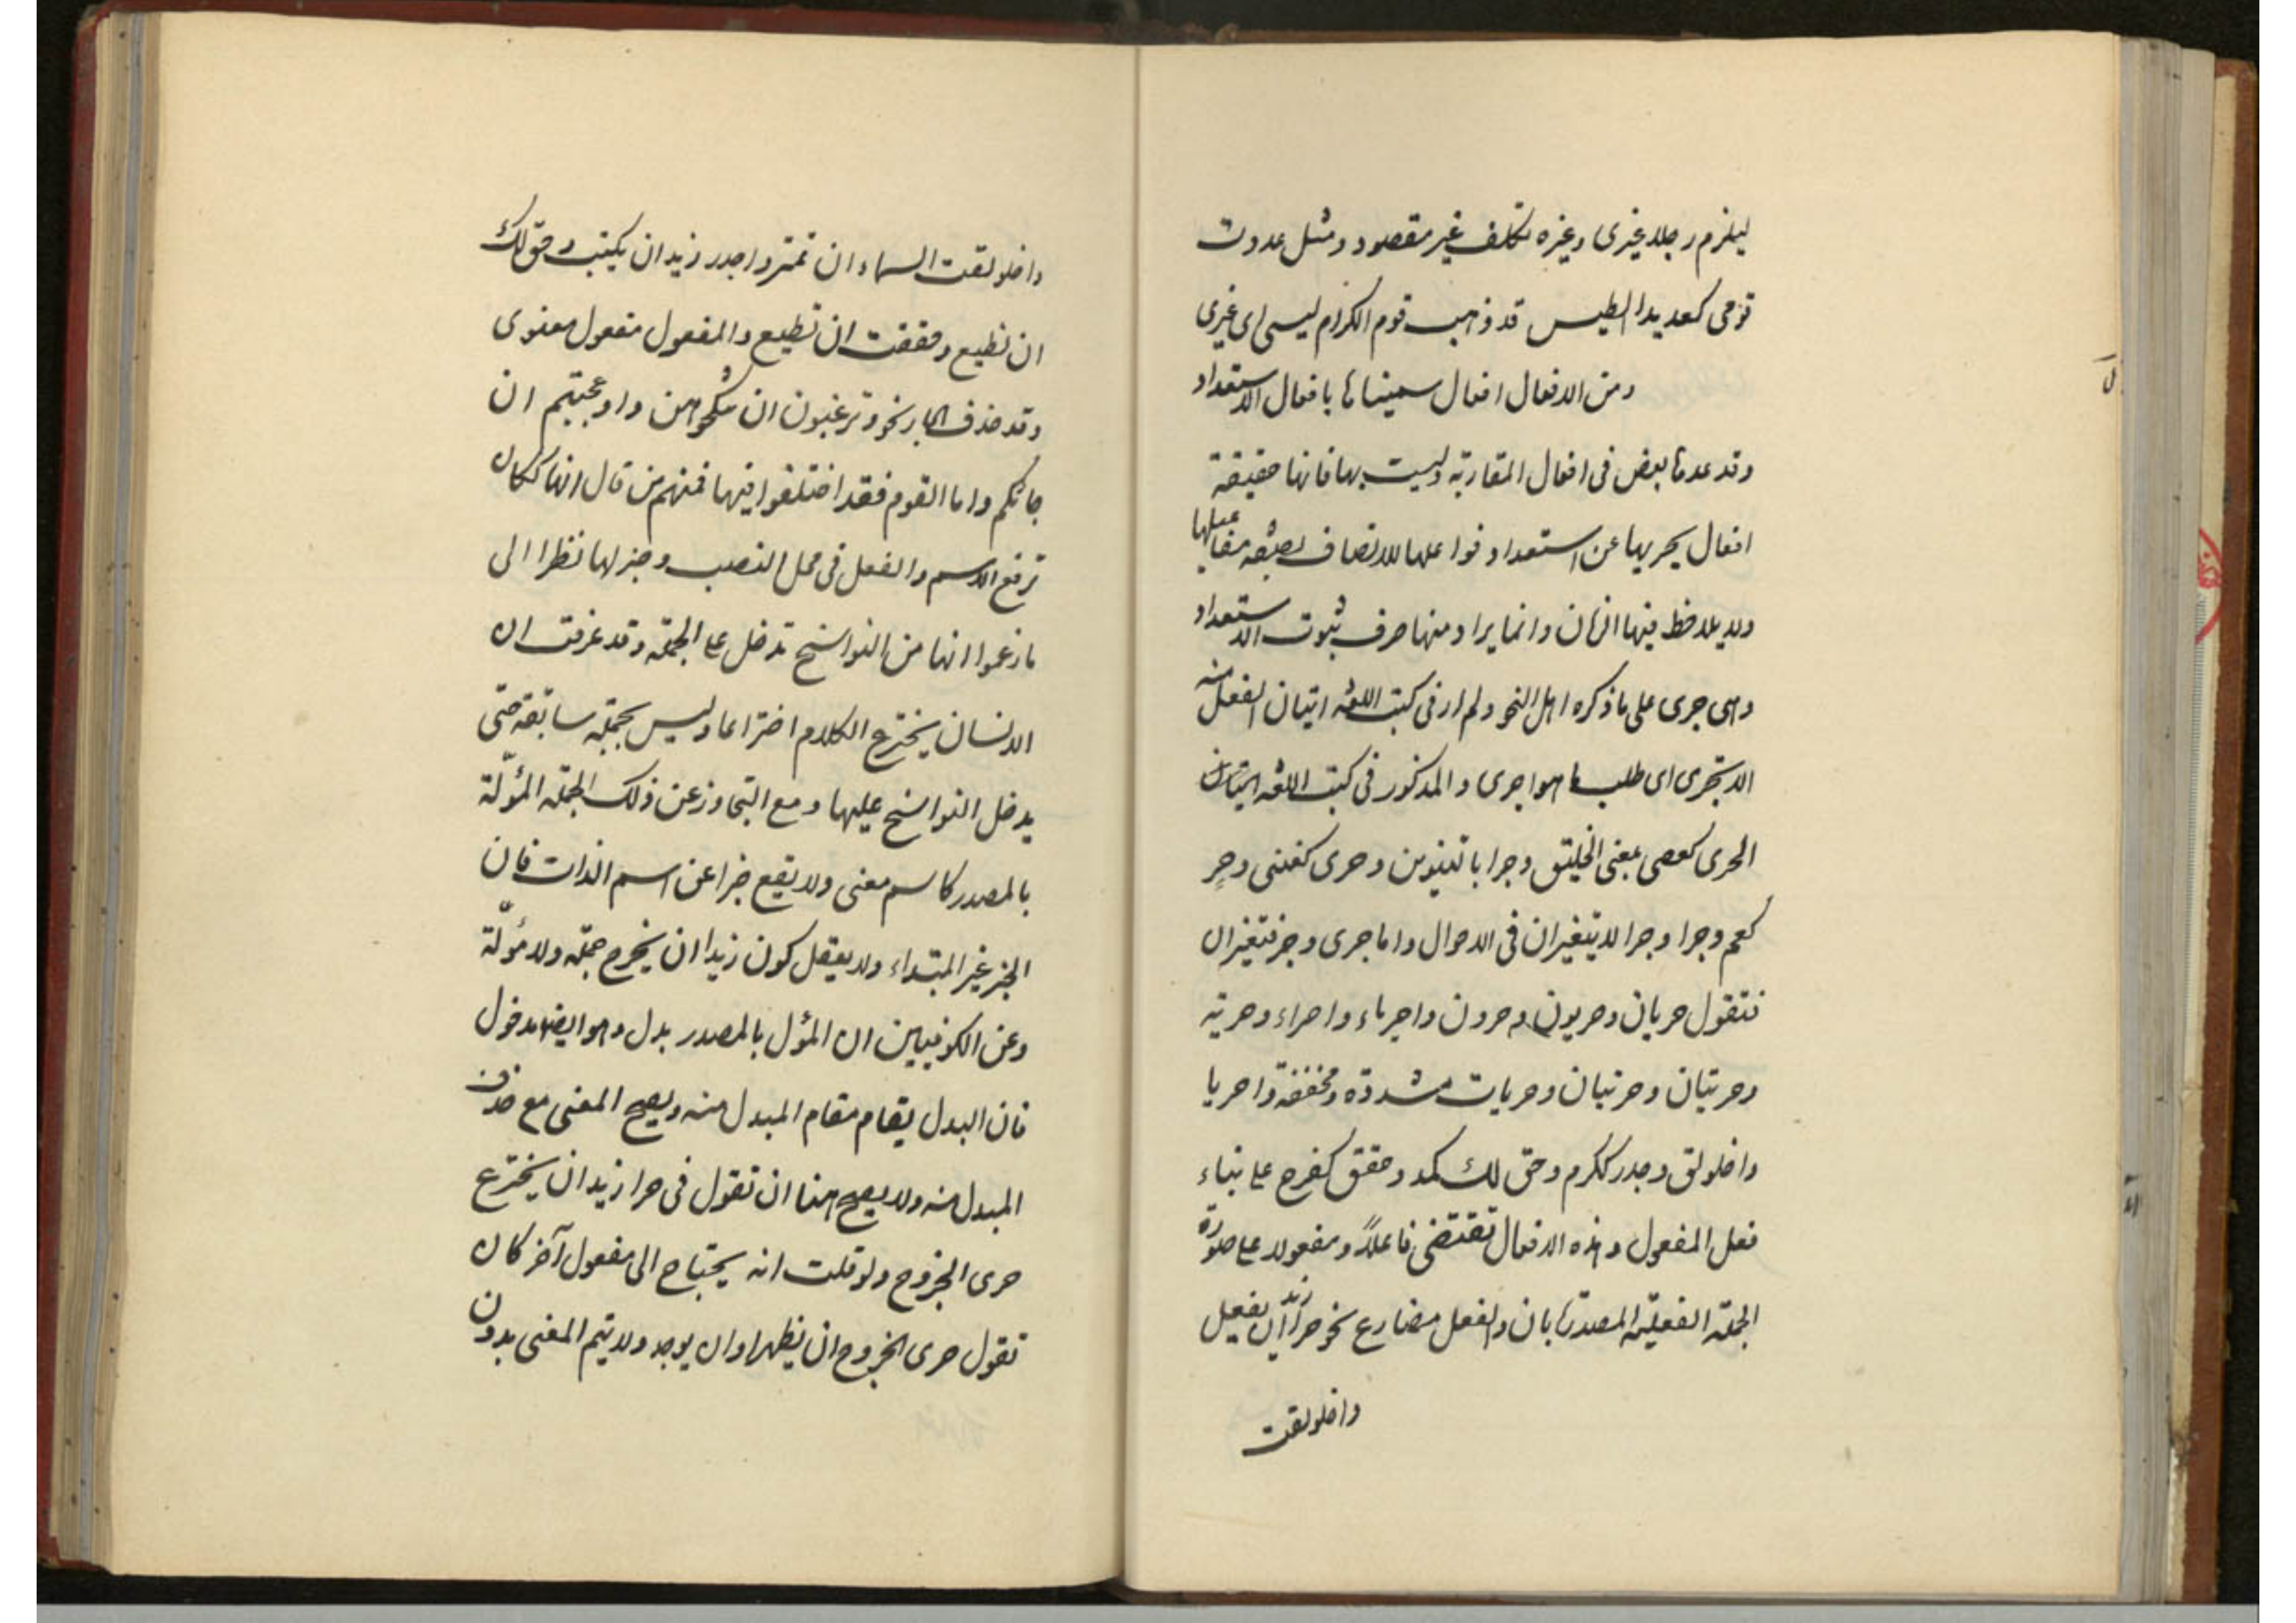 ليلزم رجلا غيرى وغيره تكلف غير مقصود ومثل عدوت
قومى كعديد الطيس قد ذهب قوم الكرام ليسى اى غيرى
ومن الافعال افعال سميناها بافعال الاستعداد
وقد عدها بعض فى افعال المقاربة وليست بها فانها حقيقة
افعال يخبر بها عن استعداد فواعلها للاتصاف بصفة مفاعيلها
ولا يلاحظ فيها الزمان وانما يراد منها صرف ثبوت الاستعداد
وهى حرى على ما ذكره اهل النحو ولم ار فى كتب اللغة اتيان الفعل منه
الا تحرى اى طلب ما هو احرى والمذكور فى كتب اللغة اتيان
الحرى كعصى بمعنى الخليق وحرا بالتنوين وحرى كغنى وحرٍ
كعم وحرا وحرا لا يتغيران فى الاحوال واما حرى وحر فتغيران
فتقول حريان وحريون وحرون واحرياء واحراء وحرية
وحريتان وحرتيان وحريات مشددة ومخففة واحريا
واخلولق وجدر ككرم وحق لك كمد وحقق كفرح على بناء
فعل المفعول وهذه الافعال تقتضى فاعلاً ومفعولا على صورة
الجملة الفعلية المصدرة بان والفعل مضارع نحو حرا زيد ان يفعل
واخلولقت
واخلولقت السماء ان تمطر واجدر زيد ان يكتب وحق لك
ان تطيع وحققت ان تطيع والمفعول مفعول معنوى
وقد حذف الجار نحو وترغبون ان تنكحوهن واوعجبتم ان
جائكم واما القوم فقد اختلفوا فيها فمنهم من قال انها ككان
ترفع الاسم والفعل فى محل النصب وخبر لها نظرا الى
ما زعموا انها من النواسخ تدخل على الجملة وقد عرفت ان
الانسان يخترع الكلام اختراعا وليس بجملة سابقة حتى
يدخل النواسخ عليها ومع التجاوز عن ذلك الجملة المؤلّة
بالمصدر كاسم معنى ولا يقع خبرا عن اسم الذات فان
الخبر غير المبتداء ولا يعقل كون زيدا ان يخرج جملة ولا مؤلّة
وعن الكوفيين ان المؤل بالمصدر بدل وهو ايضا مدخول
فان البدل يقام مقام المبدل منه ويصح المعنى مع حذف
المبدل منه ولا يصح هنا ان تقول فى حرا زيد ان يخترع
حرى الخروج ولو قلت انه يحتاج الى مفعول آخر كان
تقول حرى الخروج ان يظهر او ان يوجد ولا يتم المعنى بدون